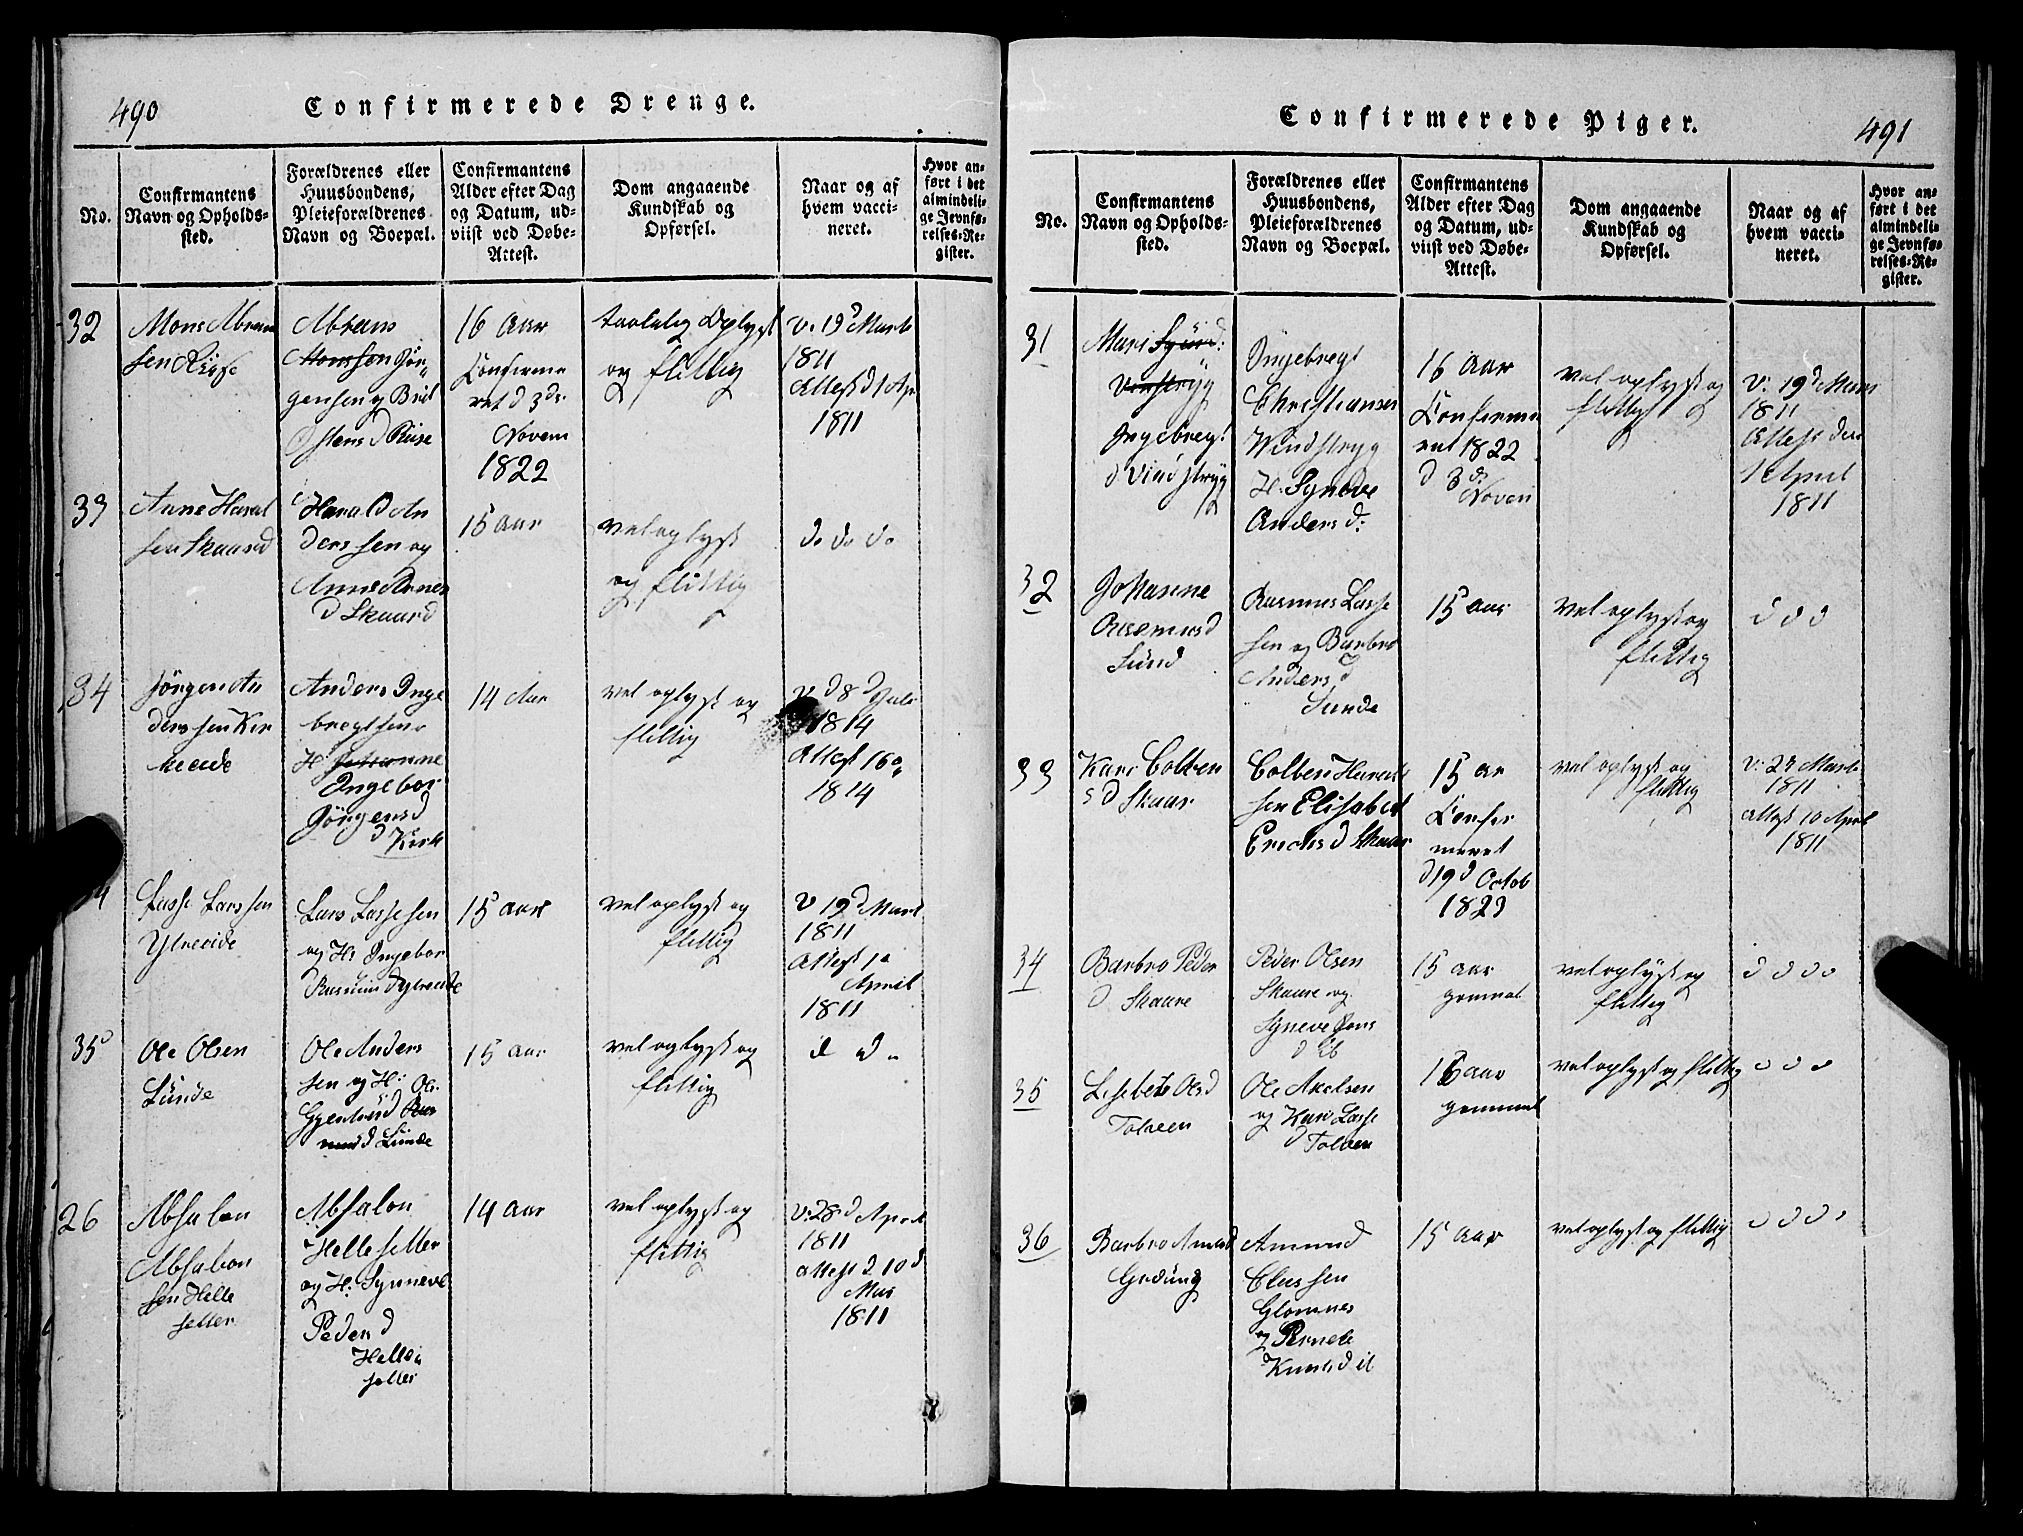 490
Confirmerede Drenge.
No.
Confirmantens
Navn og Opholds-
sted.
Forældrenes eller
Huusbondens,
Pleieforældrenes
Navn og Boepæl.
Confirmantens
Alder efter Dag
og Datum, ud-
viist ved Døbe-
Attest.
Dom angaaende
Kundskab og
Opførsel.
Naar og af
hvem vacci-
neret.
Hvor an-
ført i det
almindeli-
ge Jevnfø-
relses-Re-
gister.
32
Mons Abram
sen Riise
Abram
Monssen Jør-
gensen og Brit
Istens d Riise
16 Aar
Confirme
ret d 3de
Novem
1822
taalelig Oplyst
og flittig
v. 19d Marts
1811
Attest d 1 Apr
1811
33
Anne Haral
sen Skaard
Harald An
derssen og
Anne Arnes
d Skaard
15 Aar
vel oplyst
og flittig
do do do
34
Jörgen An
derssen Kir
keeide
Anders Inge
bregtsen
H. Johanne
Ingebor
Jörgensd
d Kirk
14 Aar
vel oplyst og
flittig
v d 8d Juli
1814
Attest 16
1814
Lasse Larssen
Ytreeide
Lars Lassesen
og H. Ingebor
Rasmus d Ytreeide
15 Aar
vel oplyst og
flittig
v 19d Mart
1811
Attest 1
April
1811
35
Ole Olsen
Sünde
Ole Anders
sen og H:
Gjertrud Ras
musd Sünde
15 Aar
vel oplyst og
flittig
d d
26
Absalon
Absalon
sen Helle
setter
Absalon
Hellesetter
og H. Synneve
Peder d
Helle
setter
14 Aar
vel oplyst og
flittig
v. 28d April
1811
attest d 10d
Mai
1811
Confirmerede Piger.
491
No.
Confirmantens
Navn og Opholds-
sted.
Forældrenes eller
Huusbondens,
Pleieforældrenes
Navn og Boepæl.
Confirmantens
Alder efter Dag
og Datum, ud-
viist ved Døbe-
Attest.
Dom angaaende
Kundskab og
Opførsel.
Naar og af
hvem vacci-
neret.
Hvor an-
ført i det
almindeli-
ge Jevnfø-
relses-Re-
gister.
31
Mari
Ingebregt
d Vindstryg
Ingebregt
Christiansen
Windstryg
H. Syneve
Anders d:
16 Aar
Confirme
ret 1822
d 3d
Noven
vel oplyst og
flittig
v. 19d Mars
1811
Attest den
1 April
1811
32
Johanne
Rasmusd
Sünd
Rasmus Lasse
sen og Barbro
Anders d
Sunde
15 Aar
vel oplyst og
flittig
d d d
33
Kari Colben
s d Skaar
Colben Harals
sen Elisabet
Erichs d Skaar
15 ar
Confir
meret
d 19d Octob
1823
vel oplyst og
flittig
v: 23 Marts
1811
Attest 10 April
1811
34
Barbro Peder
d Skaare
Peder Olsen
Skaare og
Syneve Jens
d ib
15 aar
gammel
vel oplyst og
flittig
d d d
35
Lisebet Olsd
Tolveen
Ole Axelsen
og Kari Lasse
d Tolven
16 aar
gammel
vel oplyst og flittig
d d d
36
Barbro Amund
Grodung
Amund
Clussen
Glomnes
og Pernele
Knuds d ib
15 Aar
vel oplyst og flittig
d d d